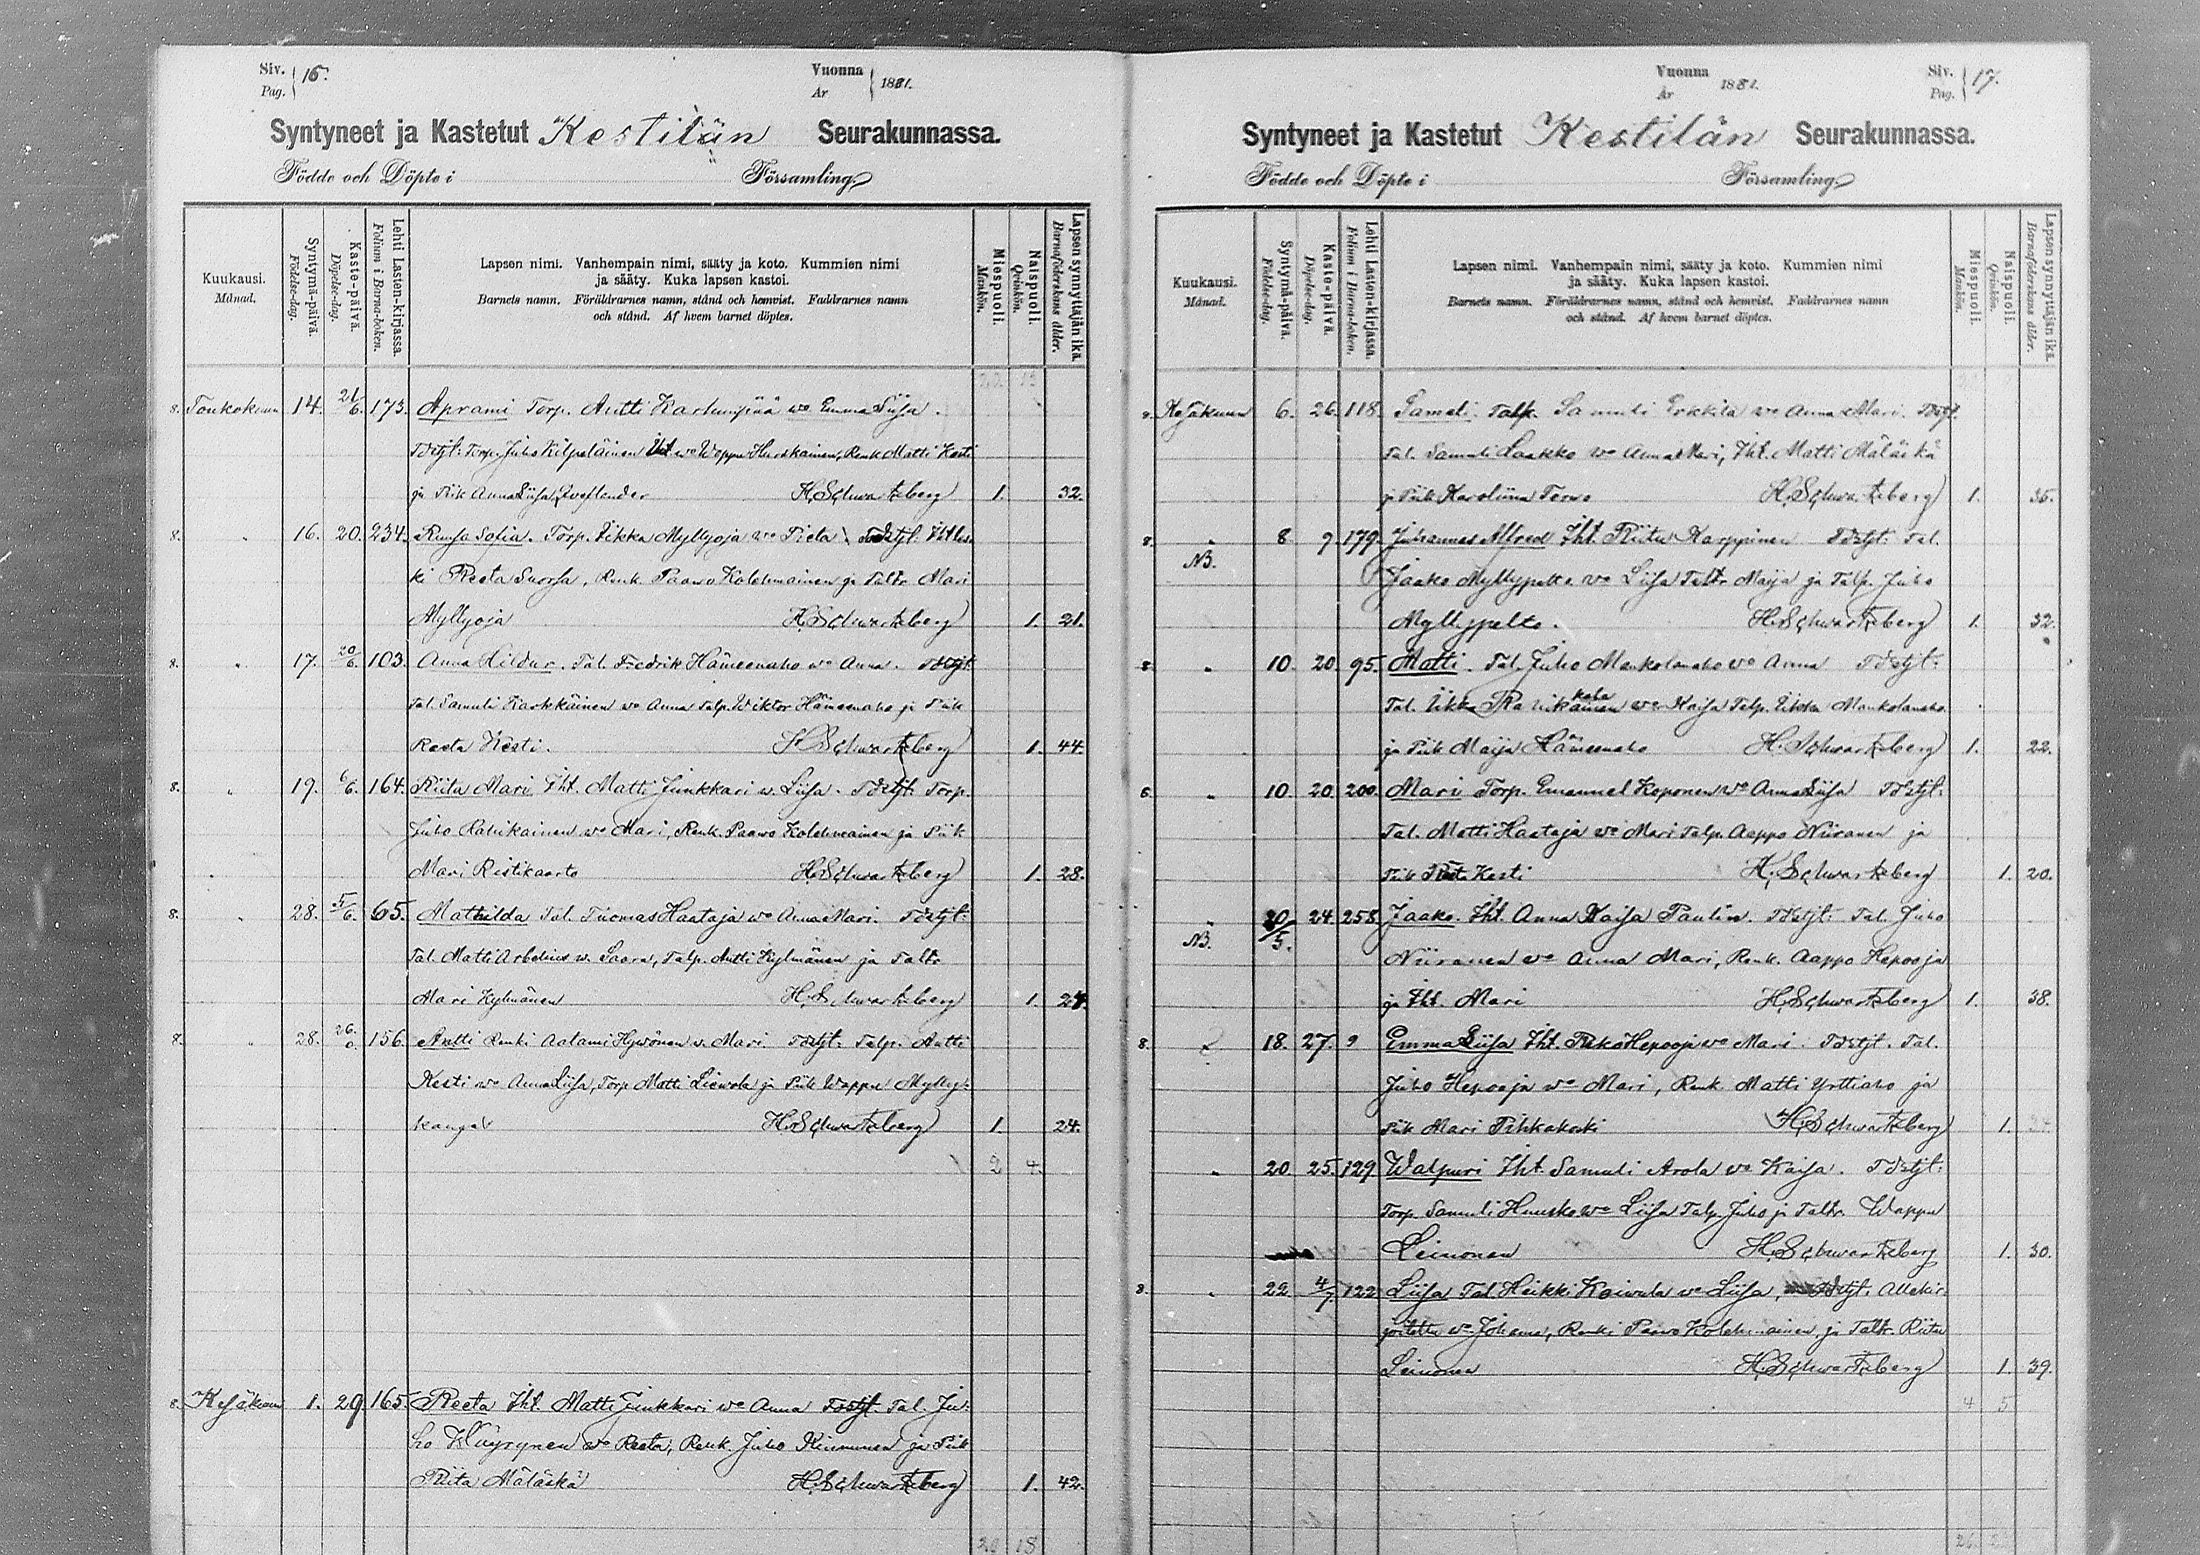 Siv. Pag. 16.
Vuonna År 1881.
Syntyneet ja Kastetut Kestilän Seurakunnassa.
Födde och Döpte i Församling
Kuukausi. Månad.
Syntymä-päivä. Födelse-dag.
Kaste-päivä. Döpelse-dag.
Lehti Lasten-kirjassa. Folium i Barna-boken.
Lapsen nimi. Vanhempain nimi, sääty ja koto. Kummien nimi
ja sääty. Kuka lapsen kastoi.
Barnets namn. Föräldrarnes namn, stånd och hemvist. Faddrarnes namn
och stånd. Af hvem barnet döptes.
Miespuoli. Mankön.
Naispuoli. Qvinkön.
Lapsen synnyttäjän ikä. Barnaföderskans ålder.
8. Toukokuun 14. 21/6. 173. Aprami Torp. Antti Karhunpää wo Emma Liisa.
Tdstjt: Torp. Juho Kilpeläinen wo Wappu Hurskainen, Renk. Matti Kesti
ja Piik Anna Liisa H. Schwartzberg 1. 32.
8. " 16. 20. 234. Ruusa Sofia. Torp. Iikka Myllyoja wo Pieta Tdstjt.
ki Reeta Suorsa, Renk. Paawo Kolehmainen ja Taltr. Mari
Myllyoja H. Schwartzberg 1. 21.
8. " 17. 20/6. 103. Anna Hildur. Tal. Fredrik Hämeenaho wo Anna. Tdstjt:
Tal. Samuli Karhkäinen wo Anna Talp. Wiktor Hämeenaho ja Piik
Reeta Kesti. H. Schwartzberg 1. 44.
8. " 19. 6/6. 164. Riitu Mari Iht. Matti Junkkari w. Liisa. Tdstjt: Torp.
Juho Rahikainen wo Mari, Renk. Paawo Kolehmainen ja Piik
Mari Ristikaarto H. Schwartzberg 1. 28.
8. " 28. 5/6. 65. Mathilda Tal. Tuomas Haataja wo Anna Mari. Tdstjt:
Tal. Matti Arbelius w. Saara, Talp. Antti Kylmänen ja Taltr.
Mari Kylmänen H. Schwartzberg 1. 24.
8. " 28. 26/6. 156. Antti Renki Aatami Hywönen w. Mari Tdstjt: Talp. Antti
Kesti wo Anna Liisa, Torp Matti Liewola ja Piik Wappu Mylly-
kangas H. Schwartzberg 1. 24.
2 4.
8. Kesäkuun 1. 29 165. Reeta Iht. Matti Junkkari wo Anna Tdstjt. Tal. Ju-
ho Wäyrynen wo Reeta, Renk. Juho Kinnunen ja Piik
Riita Mäläskä H. Schwartzberg 1. 42.
20 18
Vuonna År 1881.
Siv. Pag. 17.
Syntyneet ja Kastetut Kestilän Seurakunnassa.
Födde och Döpte i Församling
Kuukausi. Månad.
Syntymä-päivä. Födelse-dag.
Kaste-päivä. Döpelse-dag.
Lehti Lasten-kirjassa. Folium i Barna-boken.
Lapsen nimi. Vanhempain nimi, sääty ja koto. Kummien nimi
ja sääty. Kuka lapsen kastoi.
Barnets namn. Föräldrarnes namn, stånd och hemvist. Faddrarnes namn
och stånd. Af hvem barnet döptes.
Miespuoli. Mankön.
Naispuoli. Qvinkön.
Lapsen synnyttäjän ikä. Barnaföderskans ålder.
8. Kesäkuun 6. 26. 118. Sameli. Talp. Samuli Erkkila wo Anna Mari. Tdstjt.
Tal. Samuli Laakko wo Anna Mari, Iht. Matti Mäläskä
ja Piik Karoliina Terwo H. Schwartzberg 1. 36.
8. " 8 9. 179. Juhannes Alfred Iht. Riitu Karppinen Tdstjt: Tal.
NB. Jaako Myllypelto wo Liisa Taltr Maija ja Talp. Juho
Myllypelto. H. Schwartzberg 1. 32.
8. " 10. 20. 95. Matti. Tal. Juho Mankolanaho wo Anna Tdstjt:
Tal. Iikka wo Kaisa Talp. Iikka Mankolanaho
ja Piik Maija Hämeenaho H. Schwartzberg 1. 22.
6. " 10. 20. 200. Mari Torp. Emanuel Koponen wo Anna Liisa Tdstjt:
Tal. Matti Haataja wo Mari Talp. Aappo Niiranen ja
Piik Kesti H. Schwartzberg 1. 20.
" 20/5. 24. 258. Jaako. Iht. Anna Kaisa Paulin. Tdstjt: Tal. Juho
NB. Niiranen wo Anna Mari, Renk. Aappo Hepooja
ja Iht. Mari H. Schwartzberg 1. 38.
8. 18. 27. 9 Emma Liisa Iht. Hepooja wo Mari. Tdstjt. Tal.
Juho Hepooja wo Mari, Renk. Matti Yrttiaho ja
Piik Mari Pihkakoski H. Schwartzberg 1.
" 20. 25. 129. Walpuri Iht. Samuli Arola wo Kaisa. Tdstjt:
Torp. Samuli Huusko wo Liisa Talp. Juho ja Taltr. Wappu
Leinonen H. Schwartzberg 1. 30.
8. " 22. 4/7. 122 Liisa Tal. Heikki Koivula wo Liisa, Tdstjt: Allekir-
joitettu wo Johanna, Renki Paawo Kolehmainen, ja Taltr. Riitu
Leinonen H. Schwartzberg 1. 39.
4 5